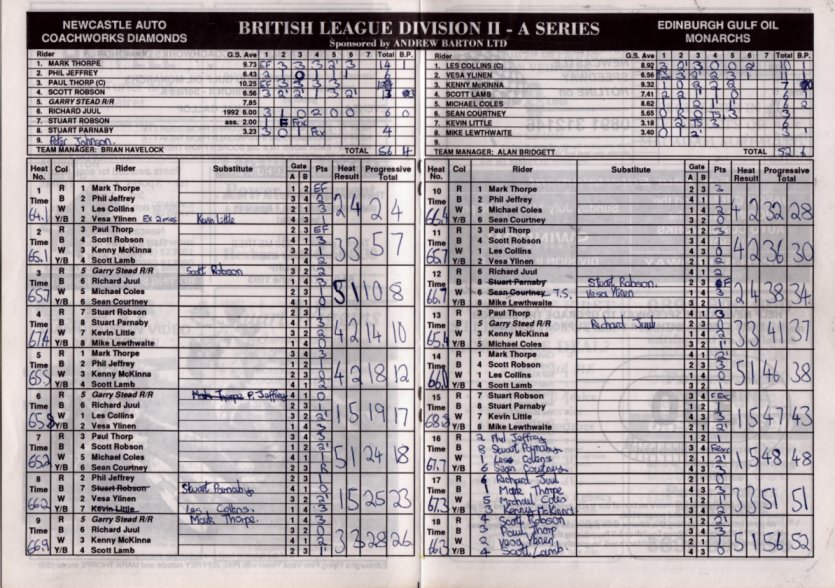 NEWCASTLE AUTO
COACHWORKS DIAMONDS
BRITISH LEAGUE DIVISION II - A SERIES
Sponsored by ANDREW BARTON LTD
EDINBURGH GULF OIL
MONARCHS
Rider G.S. Ave 1 2 3 4 5 6 7 Total B.P.
1. MARK THORPE 9.73
2. PHIL JEFFREY 6.43
3. PAUL THORP (C) 10.25
4. SCOTT ROBSON 6.56
5. GARRY STEAD R/R 7.85
6. RICHARD JUUL 1992 6.00
7. STUART ROBSON ass. 2.00
8. STUART PARNABY 3.23
9. Peter Johnson
TEAM MANAGER: BRIAN HAVELOCK TOTAL 56
Rider G.S. Ave 1 2 3 4 5 6 7 Total B.P.
1. LES COLLINS (C) 8.92
2. VESA YLINEN 6.56
3. KENNY McKINNA 9.32
4. SCOTT LAMB 7.41
5. MICHAEL COLES 8.62
6. SEAN COURTNEY 5.65
7. KEVIN LITTLE 3.18
8. MIKE LEWTHWAITE 3.40
9.
TEAM MANAGER: ALAN BRIDGETT TOTAL 52
Heat No. Col Rider Substitute Gate A B Pts Heat Result Progressive Total
1 R 1 Mark Thorpe 1 2 EF
Time B 2 Phil Jeffrey 3 4 2
64.1 W 1 Les Collins 2 1 3 2 4 2 4
Y/B 2 Vesa Ylinen Ex 2 mins Kevin Little 4 3 1
2 R 3 Paul Thorp 2 3 EF
Time B 4 Scott Robson 4 1 3
65.1 W 3 Kenny McKinna 3 2 1 3 3 5 7
Y/B 4 Scott Lamb 1 4 2
3 R 5 Garry Stead R/R Scott Robson 3 2 2
Time B 6 Richard Juul 1 4 3
65.7 W 5 Michael Coles 2 3 1 5 1 10 8
Y/B 6 Sean Courtney 4 1 0
4 R 7 Stuart Robson 2 3 1
Time B 8 Stuart Parnaby 4 1 3
67.4 W 7 Kevin Little 3 2 2 4 2 14 10
Y/B 8 Mike Lewthwaite 1 4 0
5 R 1 Mark Thorpe 3 4 3
Time B 2 Phil Jeffrey 1 2 1
65.5 W 3 Kenny McKinna 4 3 0 4 2 18 12
Y/B 4 Scott Lamb 2 1 2
6 R 5 Garry Stead R/R P. Jeffrey 4 1 0
Time B 6 Richard Juul 2 3 1
65.8 W 1 Les Collins 3 2 2' 1 5 19 17
Y/B 2 Vesa Ylinen 1 4 3
7 R 3 Paul Thorp 3 4 3
Time B 4 Scott Robson 1 2 2'
65.2 W 5 Michael Coles 4 3 1 5 1 24 18
Y/B 6 Sean Courtney 2 3 R
8 R 2 Phil Jeffrey 2 3 1
Time B 7 Stuart Robson Stuart Parnaby 4 1 0
66.2 W 2 Vesa Ylinen 3 2 2' 1 5 25 23
Y/B 7 Kevin Little Les Collins 1 4 3
9 R 5 Garry Stead R/R Mark Thorpe 1 4 3
Time B 6 Richard Juul 3 2 0
66.9 W 3 Kenny McKinna 4 1 2 3 3 28 26
Y/B 4 Scott Lamb 2 3 1'
Heat No. Col Rider Substitute Gate A B Pts Heat Result Progressive Total
10 R 1 Mark Thorpe 2 3 3
Time B 2 Phil Jeffrey 4 1 1
66.4 W 5 Michael Coles 1 4 2 4 2 32 28
Y/B 6 Sean Courtney 3 2 0
11 R 3 Paul Thorp 1 2 3
Time B 4 Scott Robson 3 4 1
65.7 W 1 Les Collins 4 3 0 4 2 36 30
Y/B 2 Vesa Ylinen 2 1 2
12 R 6 Richard Juul 4 1 2
Time B 8 Stuart Parnaby Stuart Robson 2 3 F
66.7 W 6 Sean Courtney T.S. Vesa Ylinen 1 4 3 2 4 38 34
Y/B 8 Mike Lewthwaite 3 2 1
13 R 3 Paul Thorp 4 1 3
Time B 5 Garry Stead R/R Richard Juul 2 3 0
65.4 W 3 Kenny McKinna 1 4 2 3 3 41 37
Y/B 5 Michael Coles 3 2 1'
14 R 1 Mark Thorpe 4 1 2'
Time B 4 Scott Robson 2 3 3
66.0 W 1 Les Collins 1 4 0 5 1 46 38
Y/B 4 Scott Lamb 3 2 1
15 R 7 Stuart Robson 3 4 FExc
Time B 8 Stuart Parnaby 1 2 1
68.8 W 7 Kevin Little 4 3 3 1 5 47 43
Y/B 8 Mike Lewthwaite 2 1 2'
16 R 2 Phil Jeffrey 1 2 1
Time B 8 Stuart Parnaby 3 4 Fexc
67.7 W 1 Les Collins 2 1 2' 1 5 48 48
Y/B 6 Sean Courtney 4 3 3
17 R 6 Richard Juul 2 1 0
Time B 1 Mark Thorpe 4 3 3
67.3 W 5 Michael Coles 1 2 1' 3 3 51 51
Y/B 3 Kenny McKinna 3 4 2
18 R 4 Scott Robson 1 2 2'
Time B 3 Paul Thorp 3 4 3
66.3 W 2 Vesa Ylinen 2 1 1 5 1 56 52
Y/B 4 Scott Lamb 4 3 0